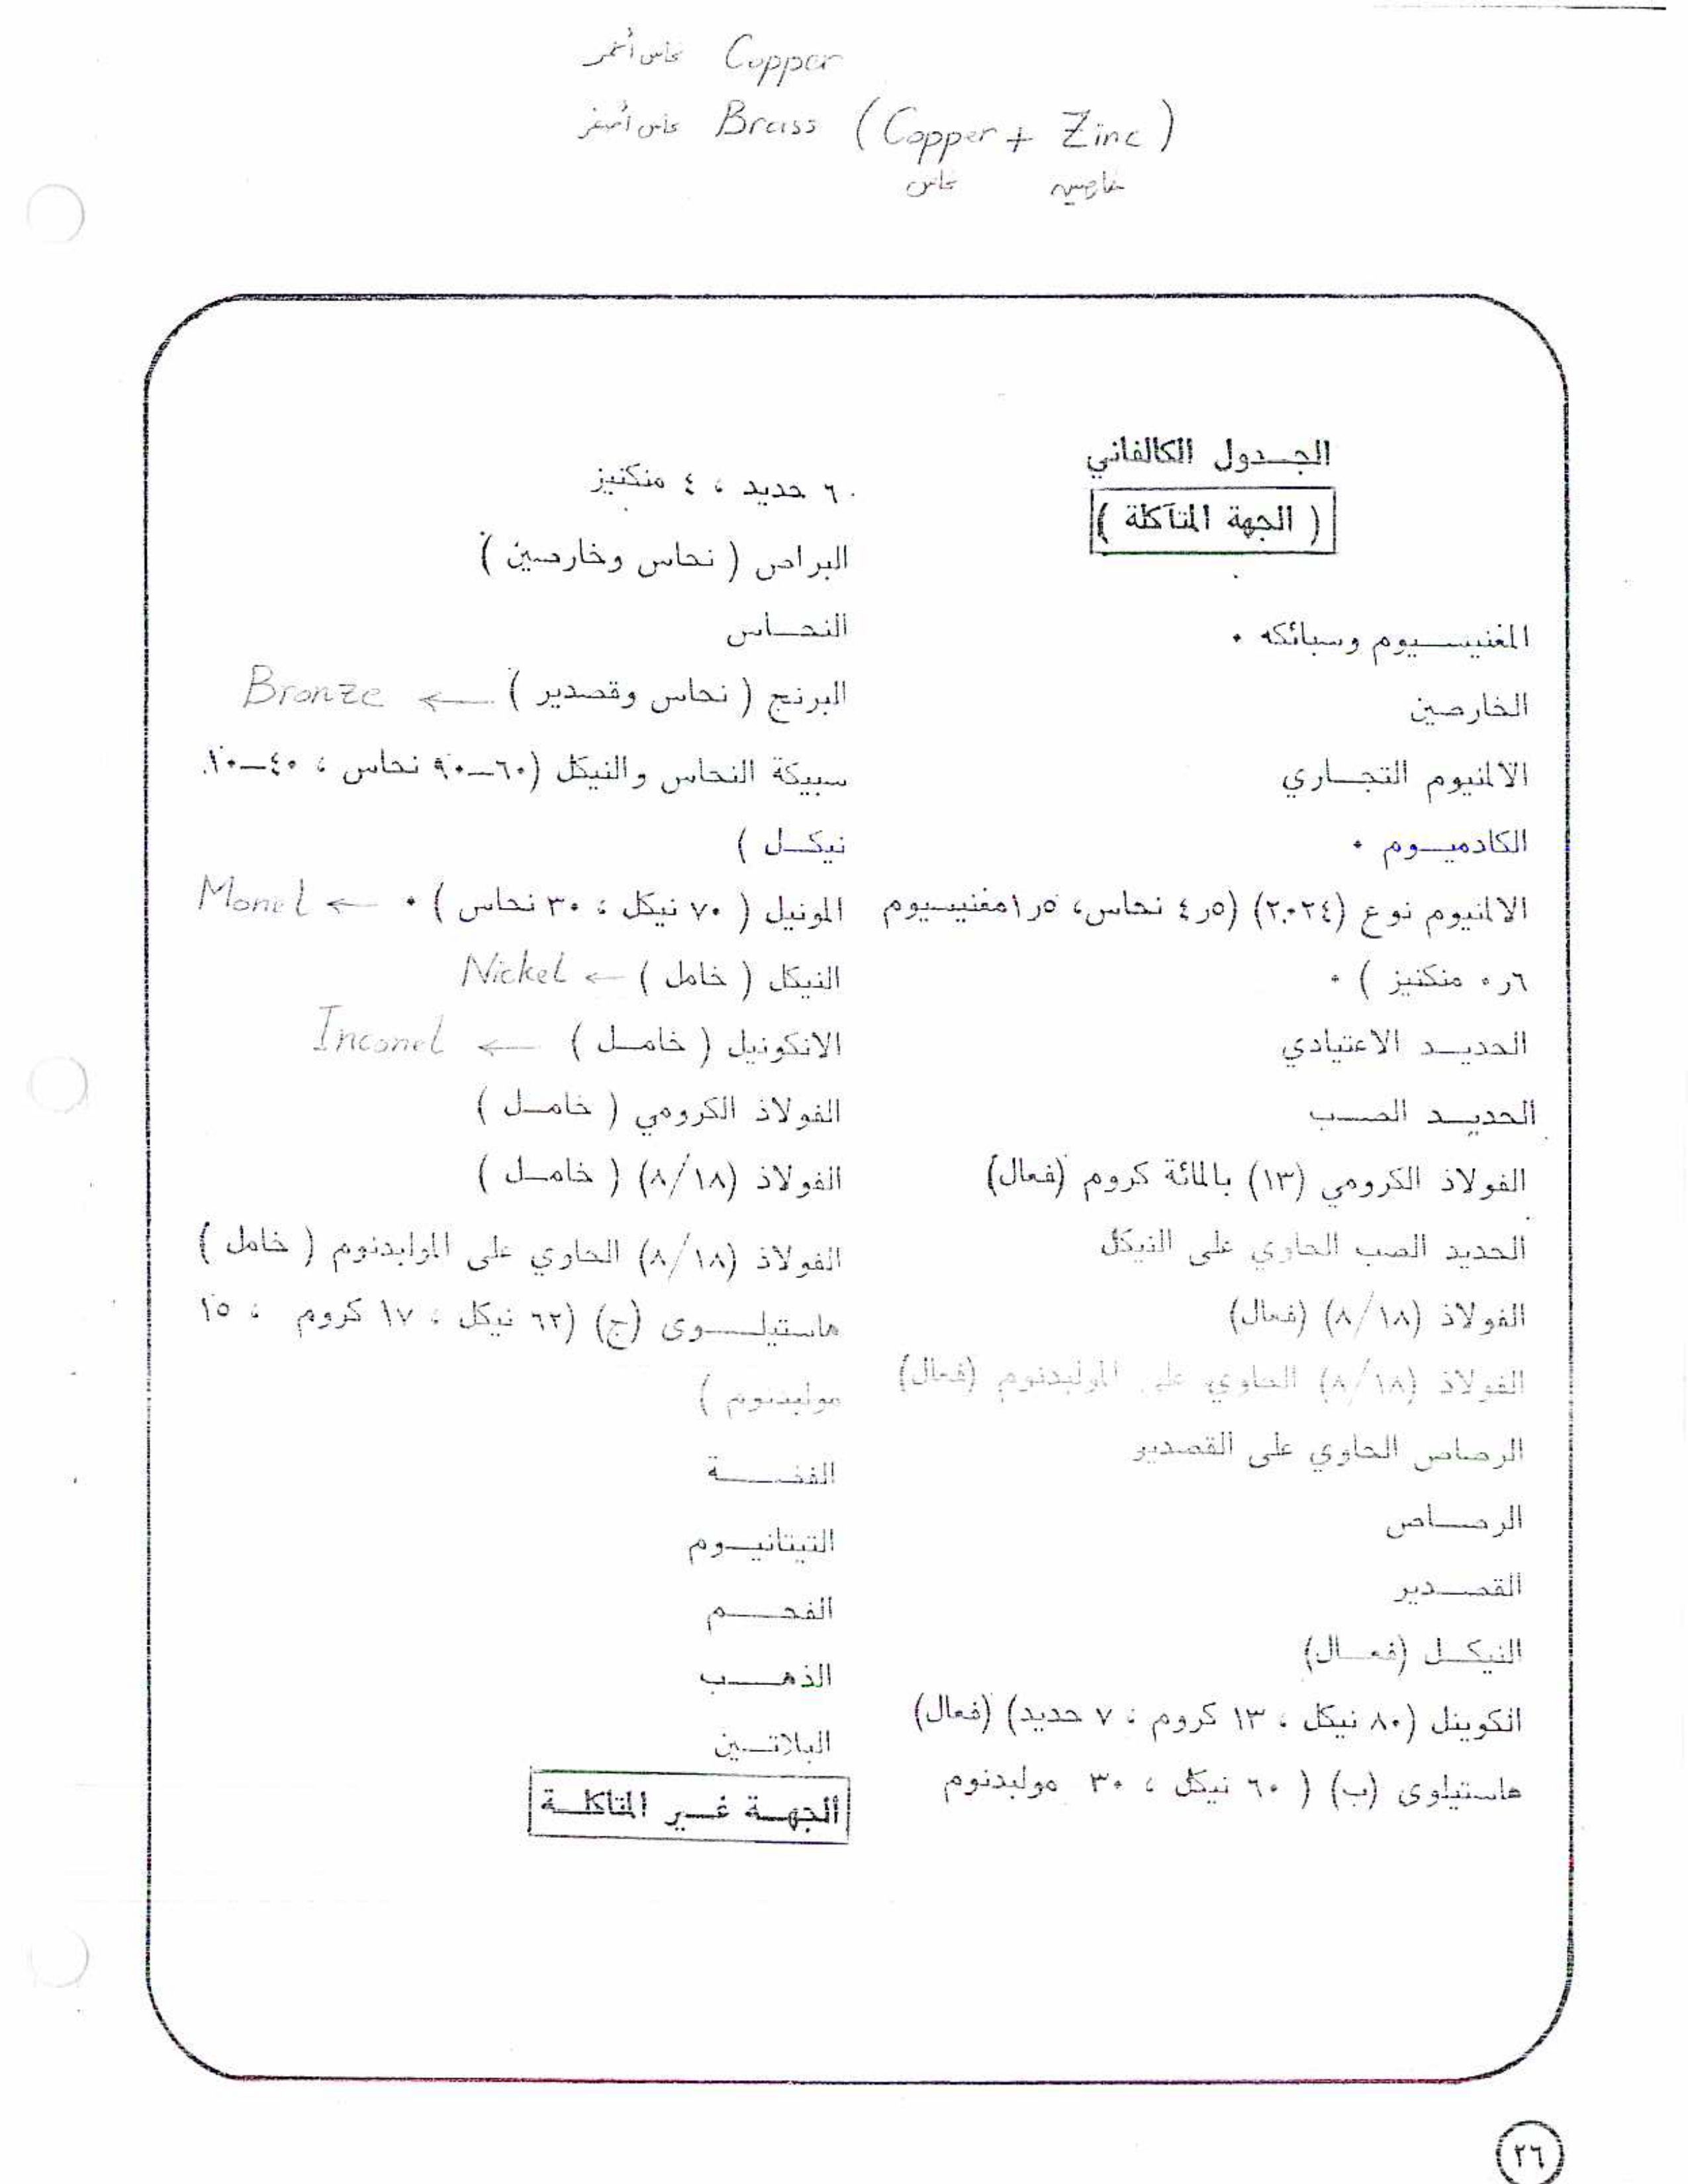 نحاس أحمر Copper
نحاس أصفر Brass (Copper + Zinc)
نحاس خارصين
الجـدول الكالفاني
( الجهة المتآكلة )
المغنيسـيوم وسبائكه .
الخارصين
الالمنيوم التجـاري
الكادميـوم .
الالمنيوم نوع (٢٠٢٤) (٤٫٥ نحاس، ١٫٥ مغنيسيوم
٠٫٦ منكنيز ) .
الحديـد الاعتيادي
الحديـد الصـب
الفولاذ الكرومي (١٣) بالمائة كروم (فعال)
الحديد الصب الحاوي على النيكل
الفولاذ (٨/١٨) (فعال)
الفولاذ (٨/١٨) الحاوي على المولبدنوم (فعال)
الرصاص الحاوي على القصدير
الرصـاص
القصـدير
النيكـل (فعـال)
انكوينل (٨٠ نيكل ، ١٣ كروم ، ٧ حديد) (فعال)
هاستيلوى (ب) ( ٦٠ نيكل ، ٣٠ موليدنوم
٦ حديد ، ٤ منكنيز
البراص ( نحاس وخارصين )
النحـاس
البرنج ( نحاس وقصدير ) ← Bronze
سبيكة النحاس والنيكل (٦٠–٩٠ نحاس ، ٤٠–١٠
نيكـل )
المونيل ( ٧٠ نيكل ، ٣٠ نحاس ) . ← Monel
النيكل ( خامل ) ← Nickel
الانكونيل ( خامـل ) ← Inconel
الفولاذ الكرومي ( خامـل )
الفولاذ (٨/١٨) ( خامـل )
الفولاذ (٨/١٨) الحاوي على المولبدنوم ( خامل )
هاستيلـوى (ج) (٦٢ نيكل ، ١٧ كروم ، ١٥
موليبدنوم )
الفضـة
التيتانيـوم
الفحـم
الذهـب
البلاتـين
الجهـة غـير المتاكلـة
٢٦